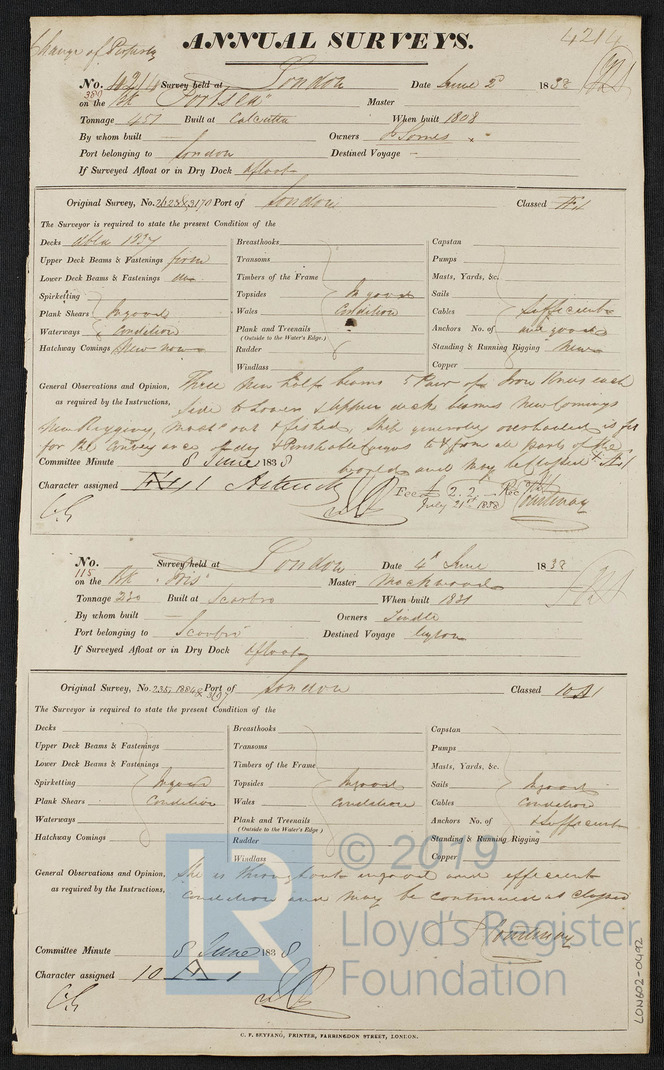 Change of Property
ANNUAL SURVEYS.
4214
No. 10214 Survey held at London Date June 2d 1838
380
on the Bk "Portsea" Master
Tonnage 451 Built at Calcutta When built 1808
By whom built Owners J Somes
Port belonging to London Destined Voyage -
If Surveyed Afloat or in Dry Dock Afloat
Original Survey, No. Port of London Classed
The Surveyor is required to state the present Condition of the
Decks 1837 Breasthooks Capstan
Upper Deck Beams & Fastenings from Transoms Pumps
Lower Deck Beams & Fastenings Timbers of the Frame Masts, Yards, &c.
Spirketting Topsides In good Sails
Plank Shears In good Wales Condition Cables Sufficient
Waterways Condition Plank and Treenails Anchors No. of and good
(Outside to the Water's Edge.)
Hatchway Comings New now Rudder Standing & Running Rigging New
Windlass Copper
General Observations and Opinion, Three New half beams 5 Pair of Iron Knees each
as required by the Instructions, Side to Lower & Upper deck beams New Comings
New Rigging, Ship generally overhauled is fit
for the conveyance of dry & Perishable Cargoes to & from all parts of the
world and may be Classed
Committee Minute 8 June 1838
Character assigned Fee £ 2.2 Recd
July 21st 1838 Courtenay
No. Survey held at London Date 4th June 1838
115
on the Bk "Iris" Master Mackwood
Tonnage 230 Built at Scarbro When built 1831
By whom built Owners Tindle
Port belonging to Scarbro Destined Voyage Ceylon
If Surveyed Afloat or in Dry Dock Afloat
Original Survey, No. Port of London Classed 10A1
The Surveyor is required to state the present Condition of the
Decks Breasthooks Capstan
Upper Deck Beams & Fastenings Transoms Pumps
Lower Deck Beams & Fastenings Timbers of the Frame Masts, Yards, &c.
Spirketting In good Topsides In good Sails In good
Plank Shears Condition Wales condition Cables Condition
Waterways Plank and Treenails Anchors No. of & Sufficient
(Outside to the Water's Edge)
Hatchway Comings Rudder Standing & Running Rigging
Windlass Copper
General Observations and Opinion, She is throughout in good and efficient
as required by the Instructions, condition and may be continued as classed
Courtenay
Committee Minute 8 June 1838
Character assigned 10 A 1
C. F. SEYFANG, PRINTER, FARRINGDON STREET, LONDON.
LON602-0492
LR
© 2019
Lloyd's Register
Foundation